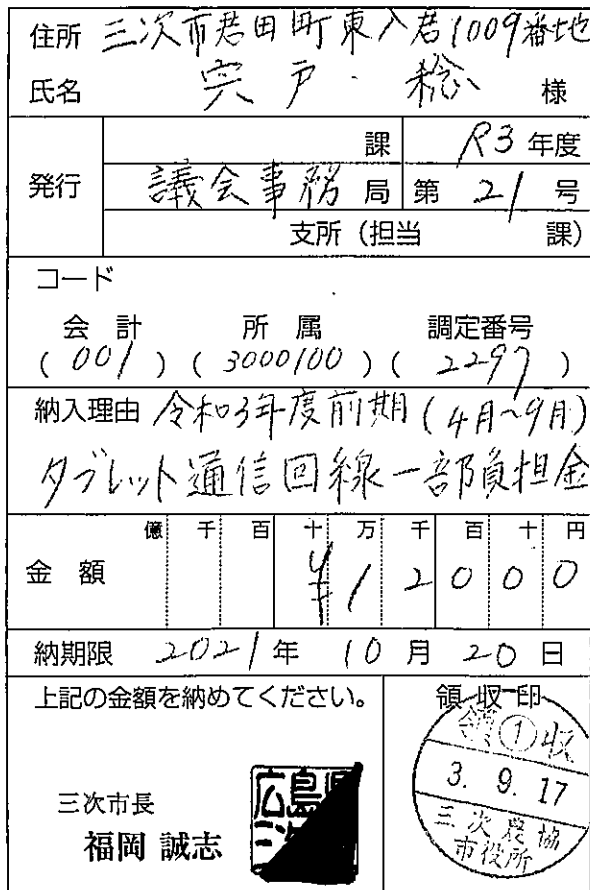 住所 三次市君田町東入君1009番地
氏名 宍戸 稔 様
発行
課 R3 年度
議会事務 局 第 21 号
支所 (担当 課)
コード
会計 所属 調定番号
( 001 ) ( 3000100 ) ( 2297 )
納入理由 令和3年度前期 (4月~9月)
タブレット通信回線一部負担金
億 千 百 十 万 千 百 十 円
金額 ¥12000
納期限 2021年 10月 20日
上記の金額を納めてください。
三次市長
福岡 誠志
広島県
領収印
領①収
3. 9. 17
三次農協
市役所